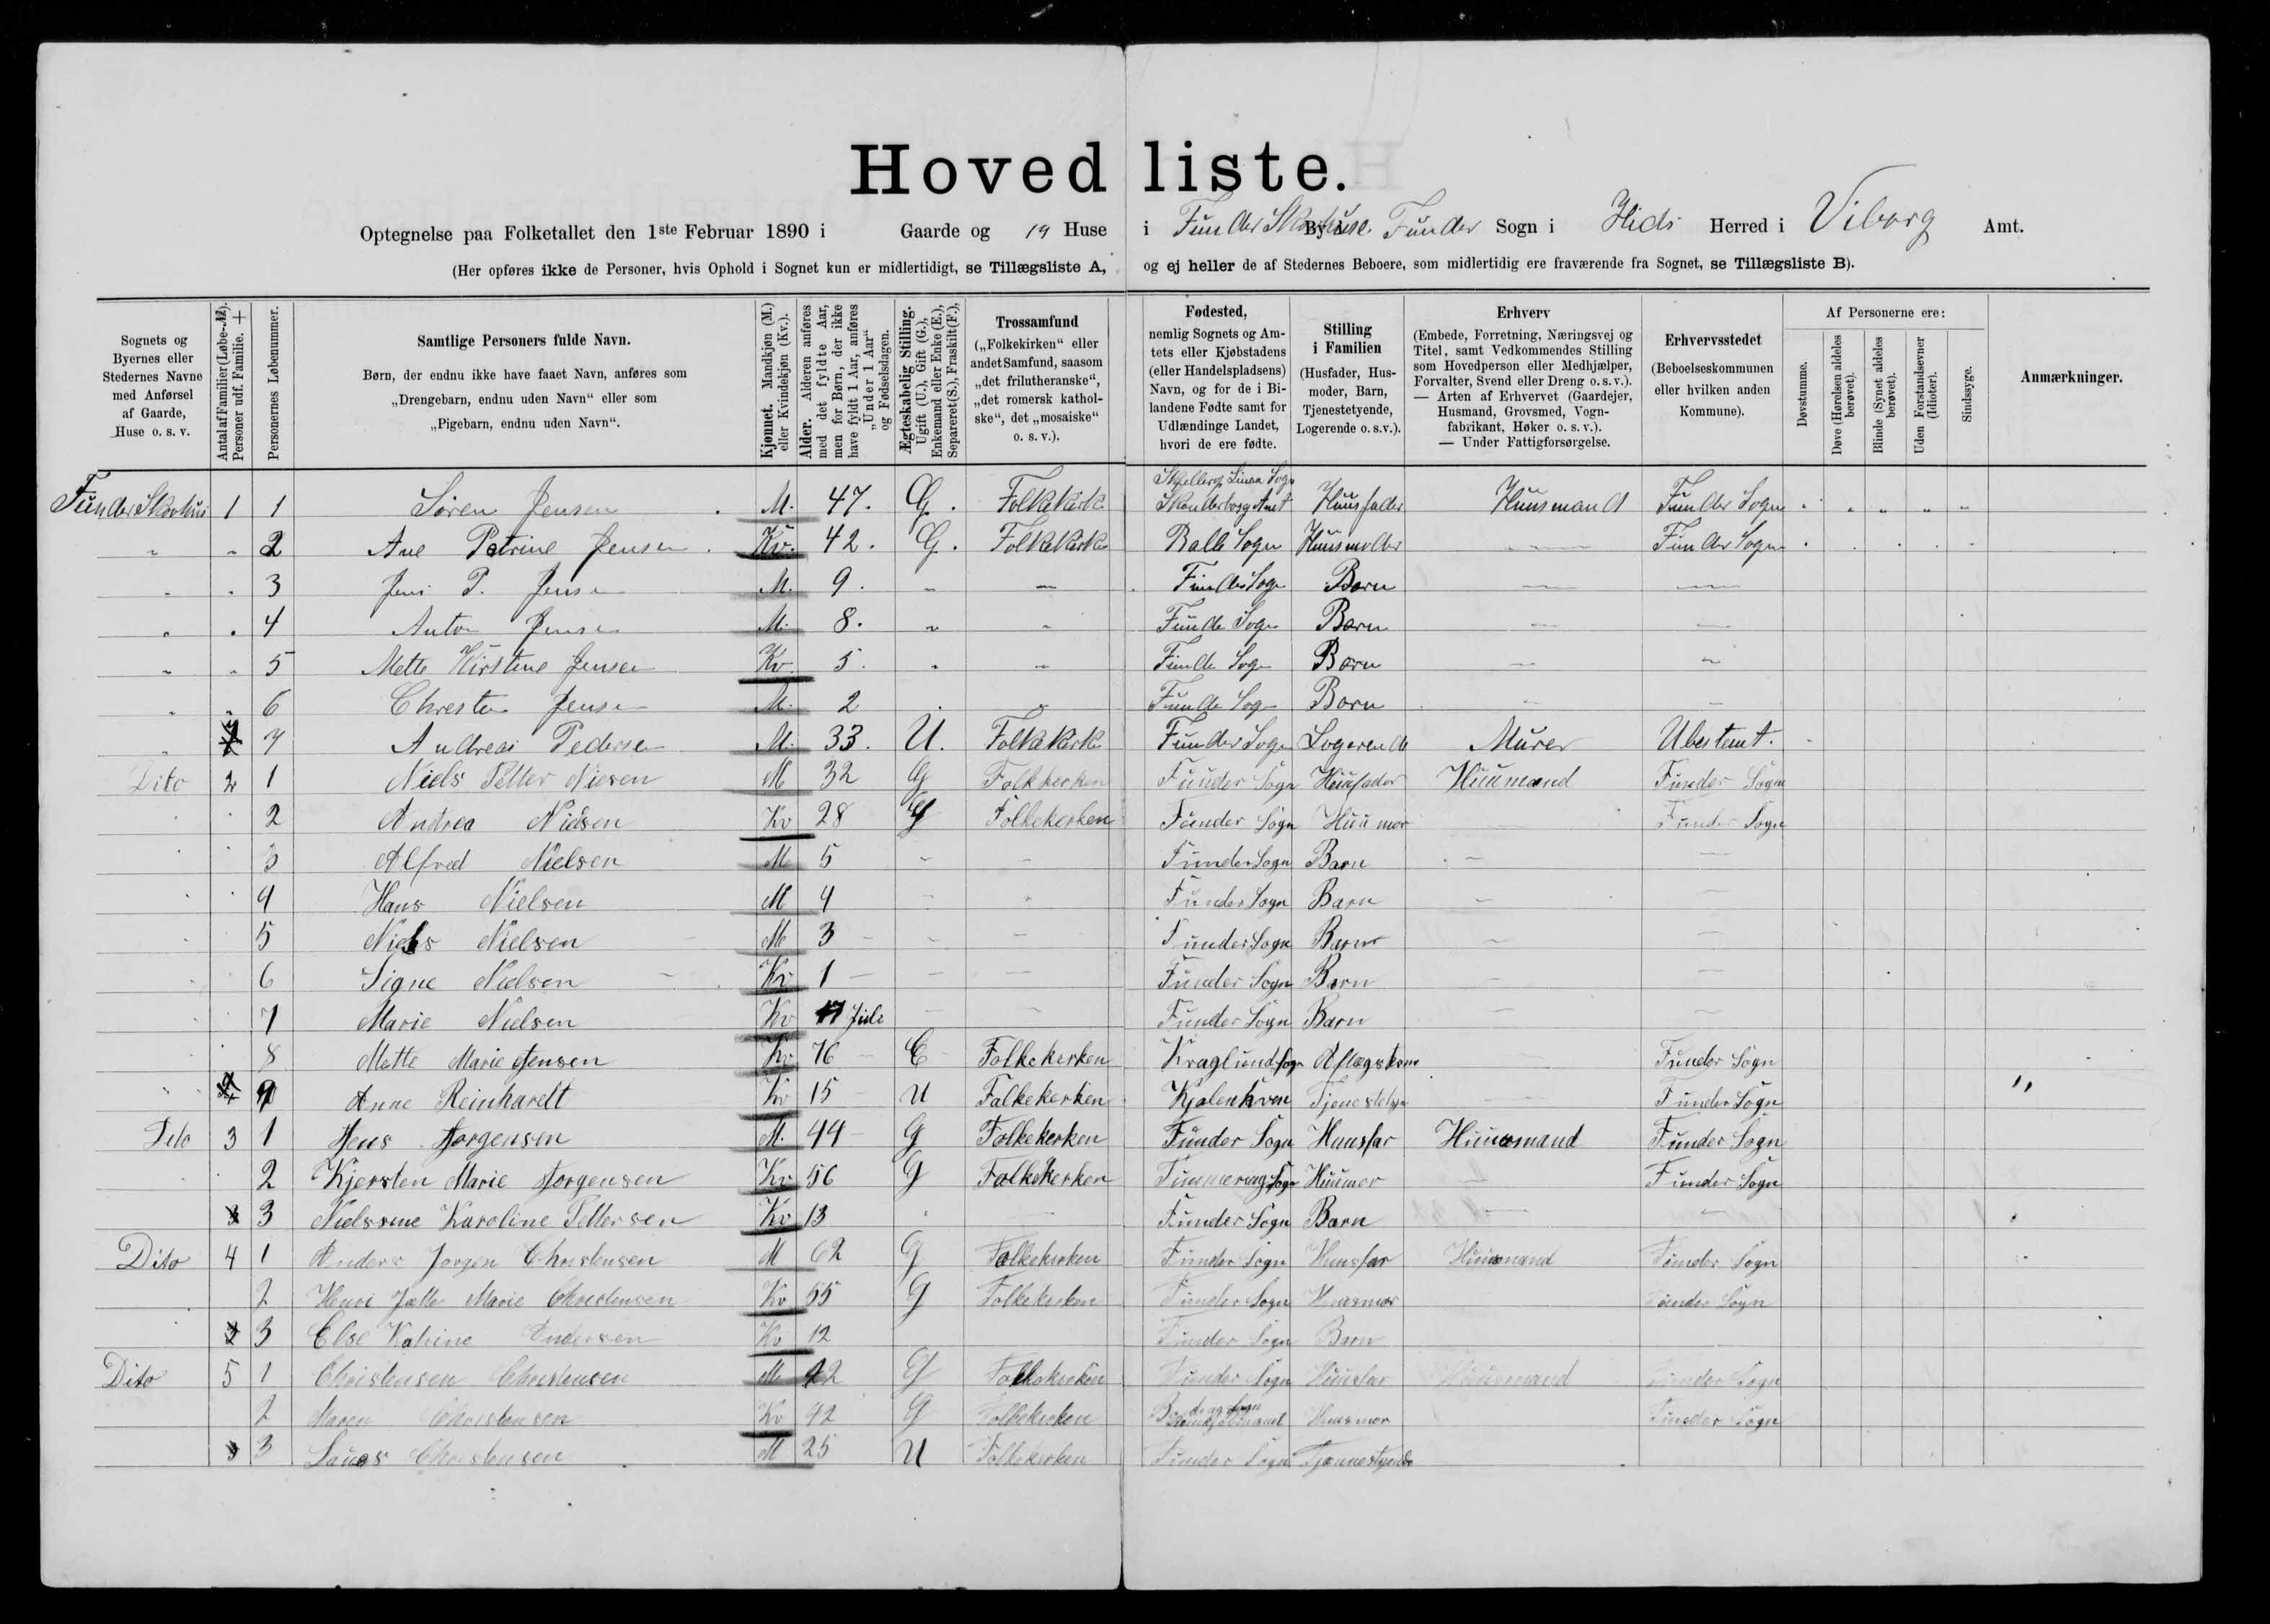 Hovedliste.
Optegnelse paa Folketallet den 1ste Februar 1890 i Gaarde og 19 Huse i Funder Skovhuse By i Funder Sogn i Hids Herred i Viborg Amt.
(Her opføres ikke de Personer, hvis Ophold i Sognet kun er midlertidigt, se Tillægsliste A, og ej heller de af Stedernes Beboere, som midlertidig ere fraværende fra Sognet, se Tillægsliste B).
Sognets og Byernes eller Stedernes Navne med Anførsel af Gaarde, Huse o. s. v.
Antal af Familier (Løbe-№). Personer udf. Familie. +
Personernes Løbenummer.
Samtlige Personers fulde Navn.
Børn, der endnu ikke have faaet Navn, anføres som „Drengebarn, endnu uden Navn“ eller som „Pigebarn, endnu uden Navn“.
Kjønnet. Mandkjøn (M.) eller Kvindekjøn (Kv.).
Alder. Alderen anføres med det fyldte Aar, men for Børn, der ikke have fyldt 1 Aar, anføres „Under 1 Aar“ og Fødselsdagen.
Ægteskabelig Stilling. Ugift (U.), Gift (G.), Enkemand eller Enke (E.), Separeret (S.), Fraskilt (F.),
Trossamfund („Folkekirken“ eller andet Samfund, saasom „det frilutheranske“, „det romersk katholske“, det „mosaiske“ o. s. v.).
Fødested, nemlig Sognets og Amtets eller Kjøbstadens (eller Handelspladsens) Navn, og for de i Bilandene Fødte samt for Udlændinge Landet, hvori de ere fødte.
Stilling i Familien (Husfader, Husmoder, Barn, Tjenestetyende, Logerende o. s.v.).
Erhverv (Embede, Forretning, Næringsvej og Titel, samt Vedkommendes Stilling som Hovedperson eller Medhjælper, Forvalter, Svend eller Dreng o. s. v.). — Arten af Erhvervet (Gaardejer, Husmand, Grovsmed, Vognfabrikant, Høker o. s. v.). — Under Fattigforsørgelse.
Erhvervsstedet (Beboelseskommunen eller hvilken anden Kommune).
Af Personerne ere:
Døvstumme.
Døve (Hørelsen aldeles berøvet).
Blinde (Synet aldeles berøvet).
Uden Forstandsevner (Idioter).
Sindssyge.
Anmærkninger.
Funder Skovhus 1 1 Søren Jensen M. 47. G. Folkekirke Skjellerup Linaa Sogn Skanderborg Amt Huusfader Huusmand Funder Sogn
" " 2 Ane Petrine Jensen Kv. 42. G. Folkekirke Balle Sogn Huusmoder — Funder Sogn
" " 3 Jens P. Jensen M. 9. " — Funder Sogn Barn — —
" " 4 Anton Jensen M. 8. " " Funder Sogn Barn — —
" " 5 Mette Kirstine Jensen Kv. 5. " " Funder Sogn Barn — —
" " 6 Chresten Jensen M. 2 " " Funder Sogn Barn — —
" 7 7 Andreas Pedersen M. 33. U. Folkekirke Funder Sogn Logerende Murer Ubestemt.
Dito 2 1 Niels Petter Niesen M 32 G Folkkerken Funder Sogn Huusfader Huumand Funder Sogn
2 Andrea Nielsen Kv 28 G Folkekerken Funder Sogn Huumor — Funder Sogn
3 Alfred Nielsen M 5 — — Funder Sogn Barn — —
4 Hans Nielsen M 4 — — Funder Sogn Barn — —
5 Niels Nielsen M 3 — — Funder Sogn Barn — —
6 Signe Nielsen Kv 1 — — Funder Sogn Barn — —
7 Marie Nielsen Kv 17 Jule — — Funder Sogn Barn — —
8 Mette Marie Jensen Kv 76 E Folkekerken Kraglund Sogn Aflægskone — Funder Sogn
9 9 Anne Reinhardt Kv 15 U Folkekerken Tjenestetye — Funder Sogn "
Dito 3 1 Jens Jorgensen M. 44 G Folkekerken Funder Sogn Huusfar Huusmand Funder Sogn
2 Kjersten Marie Jorgensen Kv 56 G Folkekerken Sogn Huumor — Funder Sogn
3 3 Nielsine Karoline Pettersen Kv 13 Funder Sogn Barn — —
Dito 4 1 Anders Jorgen Christensen M 62 G Folkekerken Funder Sogn Huusfar Huusmand Funder Sogn
2 Marie Christensen Kv 55 G Folkekerken Funder Sogn Huusmor Funder Sogn
3 3 Else Katrine Andersen Kv 12 Funder Sogn Barn
Dito 5 1 Christensen Christensen M 42 G Folkekerken Funder Sogn Huusfar Huusmand Funder Sogn
2 Maren Christensen Kv 42 G Folkekerken Huusmor Funder Sogn
3 3 Christensen M 25 U Folkekerken Funder Sogn Tjennestyende